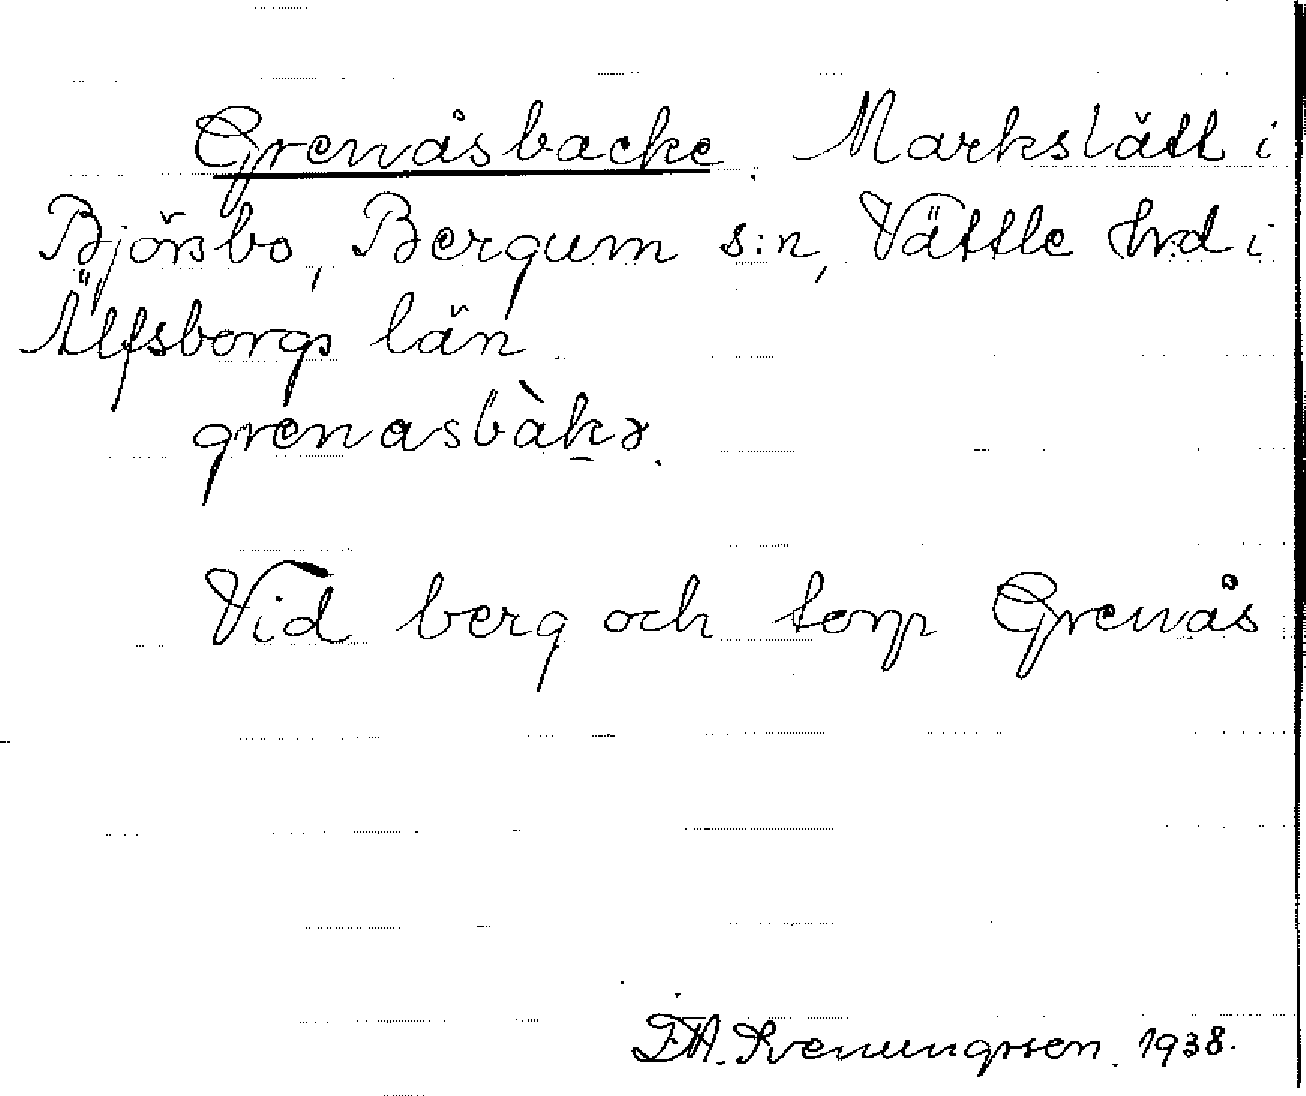 Grenåsbacke. Markslätt i
Björsbo, Bergum s:n, Vättle hrd i
Älfsborgs län
grenasbàkə.
Vid berg och torp Grenås
Svenungsson. 1938.